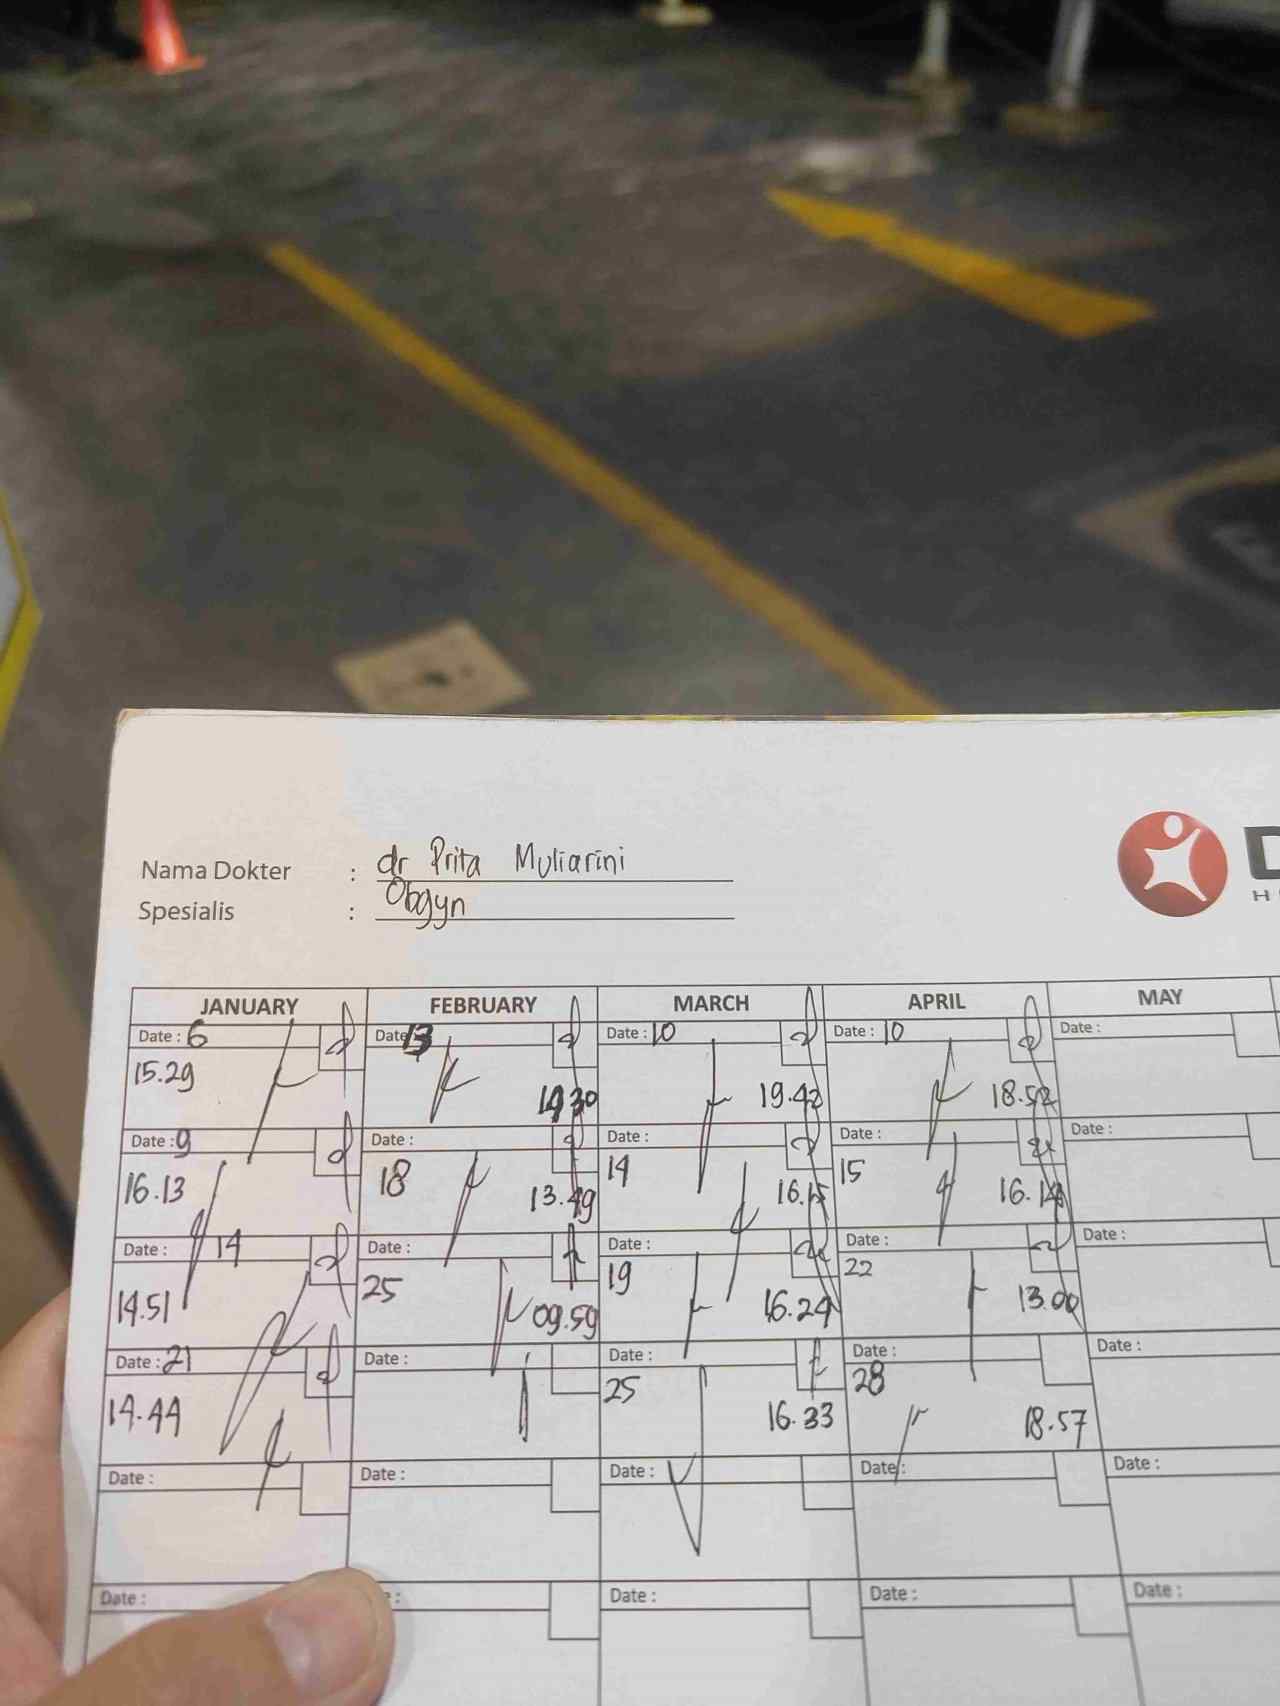 Nama Dokter : dr Prita Muliarini
Spesialis : Obgyn
D
H
JANUARY FEBRUARY MARCH APRIL MAY
Date : 6 Date : 13 Date : 10 Date : 10 Date :
15.29 19.42 18.52
Date : 9 Date : Date : Date : Date :
16.13 18 13.49 14 16.15 15
Date : 14 Date : Date : Date : Date :
14.51 25 09.59 19 16.24 22 13.00
Date : 21 Date : Date : Date : Date :
14.44 25 16.33 28 18.57
Date : Date : Date : Date : Date :
Date : : Date : Date : Date :